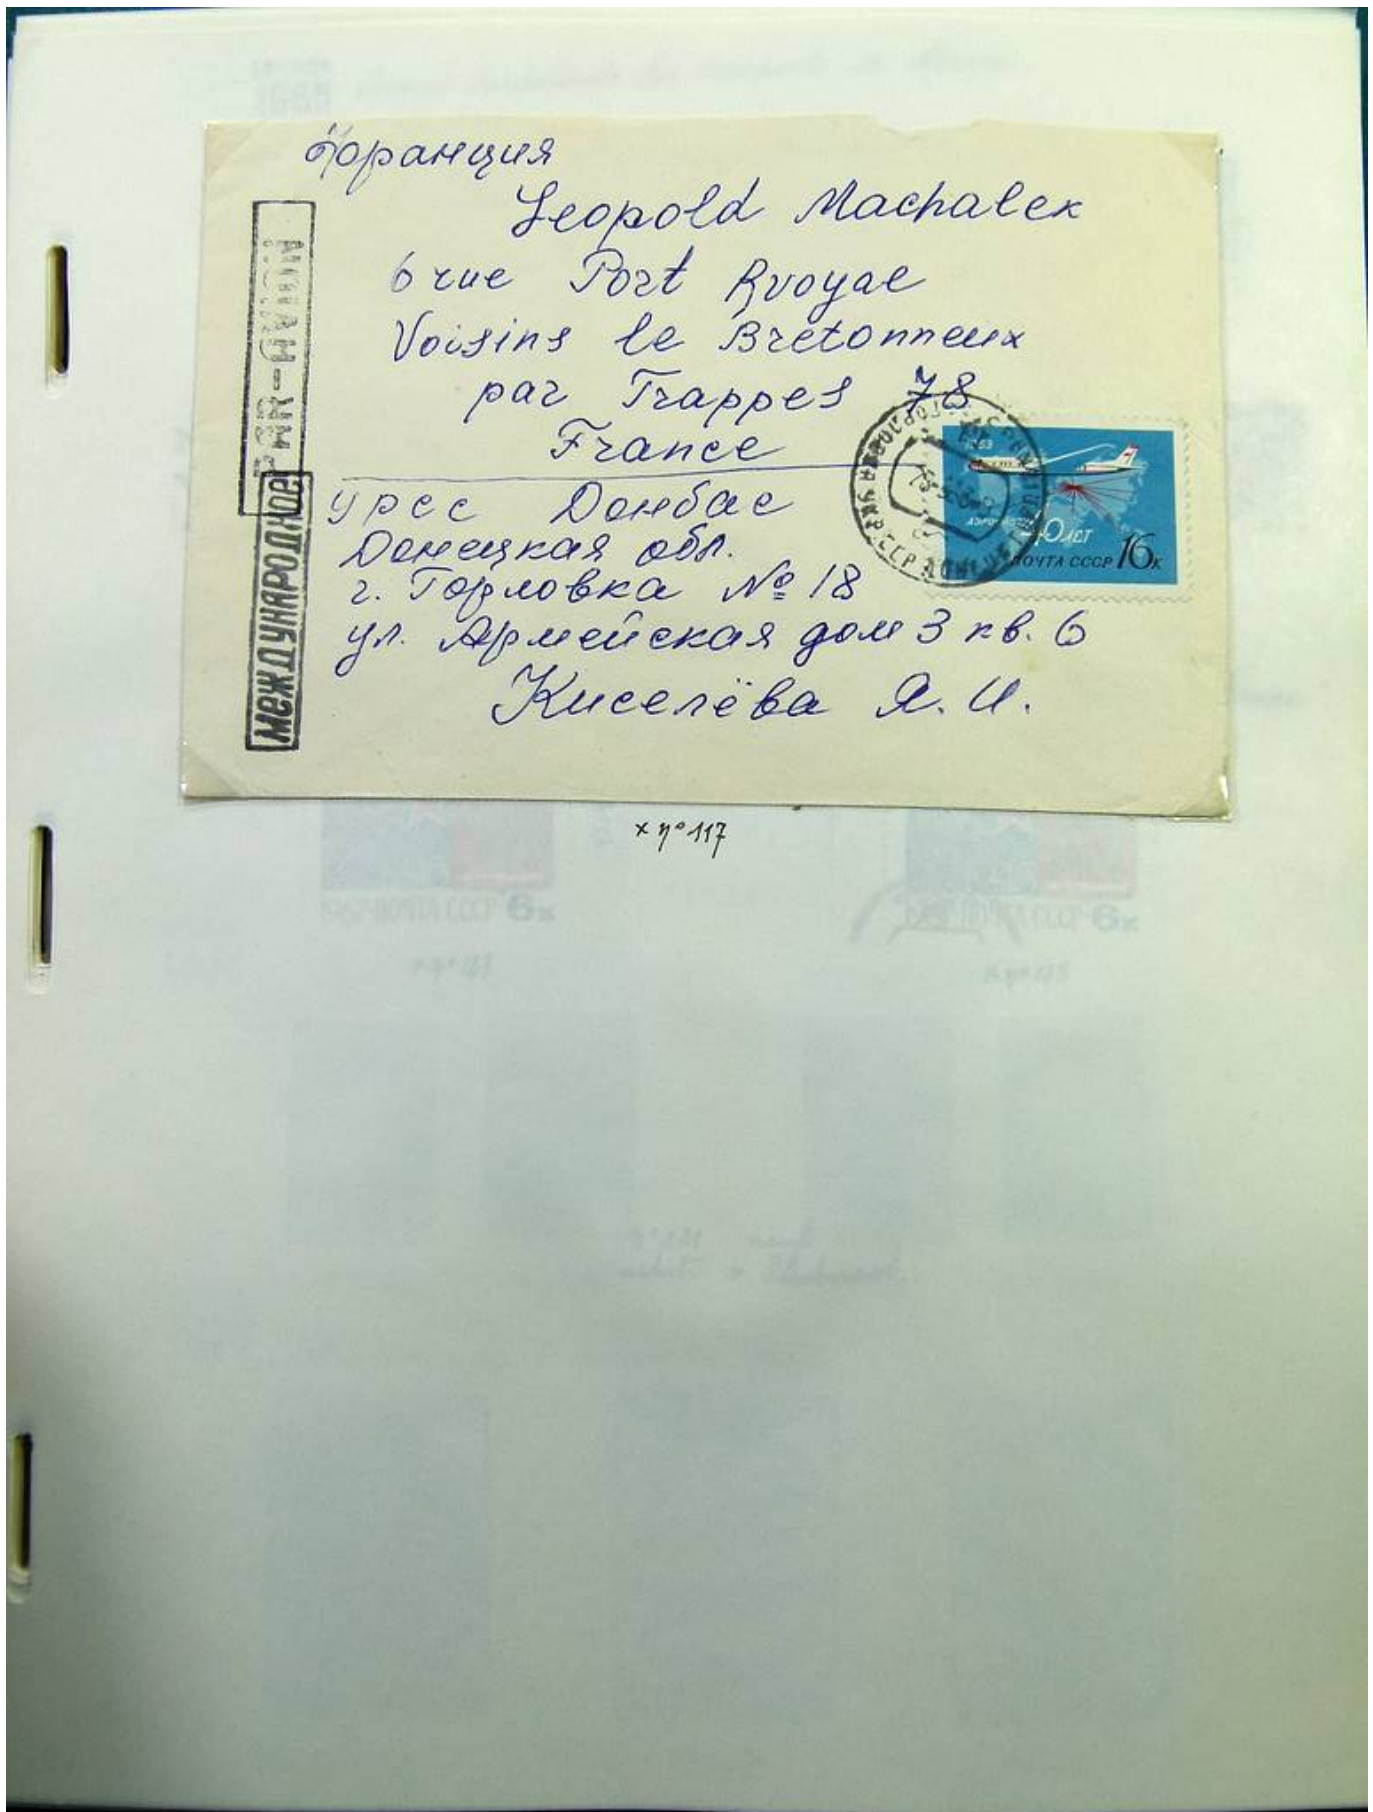 Франция
Leopold Machalek
6 rue Port Rvoyal
Voisins le Bretonneux
par Trappes 78
France
УРСС Донбас
Донецкая обл.
г. Горловка № 18
ул. Армейская дом 3 кв. 6
Киселёва Я. И.
МЕЖДУНАРОДНОЕ
ЛЕТ
ПОЧТА СССР 16к
x n° 117